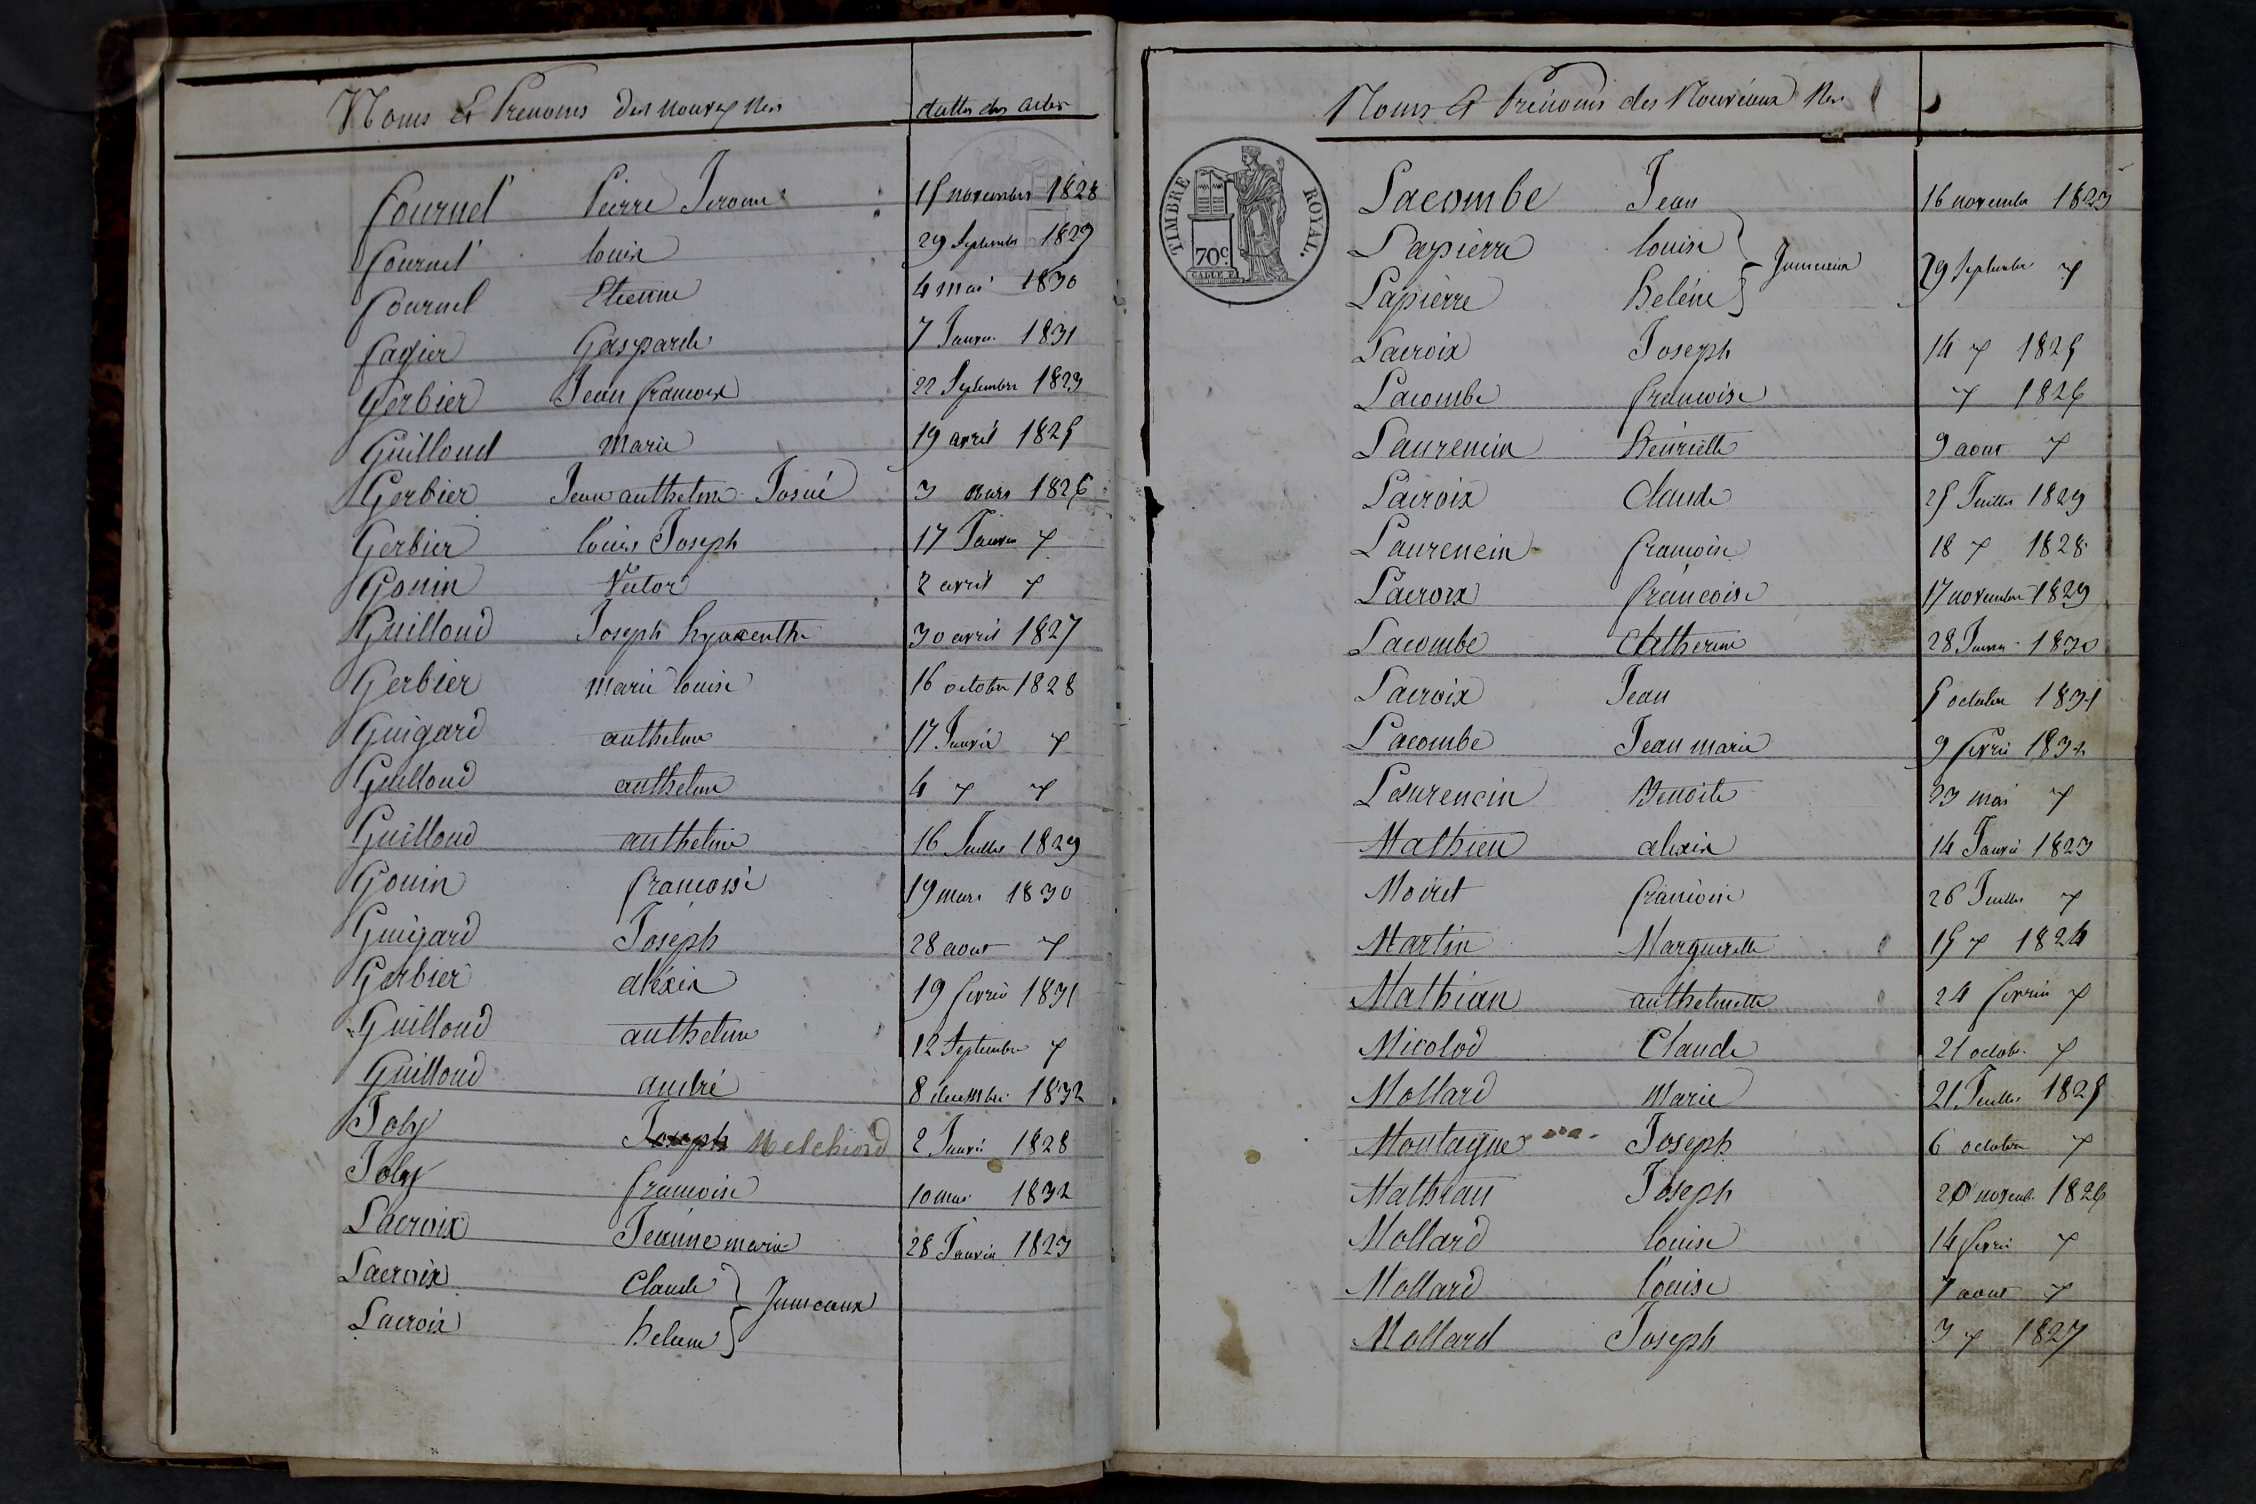 Noms Et Prenoms des nouvx Nés
dattes des actes
fournel Pierre Jerome 15 novembre 1828
fournel louis 29 Septembre 1829
fournel Etienne 4 mai 1830
fagier Gasparde 7 Janvier 1831
Gerbier Jean francois 22 Septembre 1823
Guilloud marie 19 avril 1825
Gerbier Jean anthelme Josué 3 mars 1826
Gerbier louis Joseph 17 Janvier
Gonin Victor 2 avril
Guilloud Joseph hyacenthe 30 avril 1827
Gerbier marie louise 16 octobre 1828
Guigard anthelme 17 Janvier
Guilloud anthelme 4
Guilloud anthelme 16 Juillet 1829
Gonin francoise 19 mars 1830
Guigard Joseph 28 aout
Gerbier alexis 19 fevrier 1831
Guilloud anthelme 12 Septembre
Guilloud andré 8 decembre 1832
Joly Joseph Melchiord 2 Janvier 1828
Joly francoise 10 mai 1832
Lacroix Jeanne marie 28 Janvier 1823
Lacroix Claude
Jumeaux
Lacroix helene
Noms Et Prénoms des Nouveaux Nés
TIMBRE ROYAL.
70c.
Lacombe Jean 16 novembre 1823
Lapierre louise
Jumeaux 29 Septembre
Lapierre heléne
Lacroix Joseph 14 1825
Lacombe francoise 1826
Laurencin henriette 9 aout
Lacroix Claude 25 Juillet 1829
Laurencin francoise 18 1828
Lacroix francoise 17 novembre 1829
Lacombe Catherine 28 Janvier 1830
Lacroix Jean 5 octobre 1831
Lacombe Jean marie 9 fevrier 1832
Laurencin Benoite 23 mai
Mathieu alexis 14 Janvier 1823
Moiret francoise 26 Juillet
Martin Marguerette 15 1824
Mathian anthelmette 24 fevrier
Micolod Claude 21 octobre
Mollard Marie 21 Juillet 1825
Montagne Joseph 6 octobre
Mathian Joseph 20 novemb. 1826
Mollard louise 14 fevrier
Mollard louise 7 aout
Mollard Joseph 3 1827